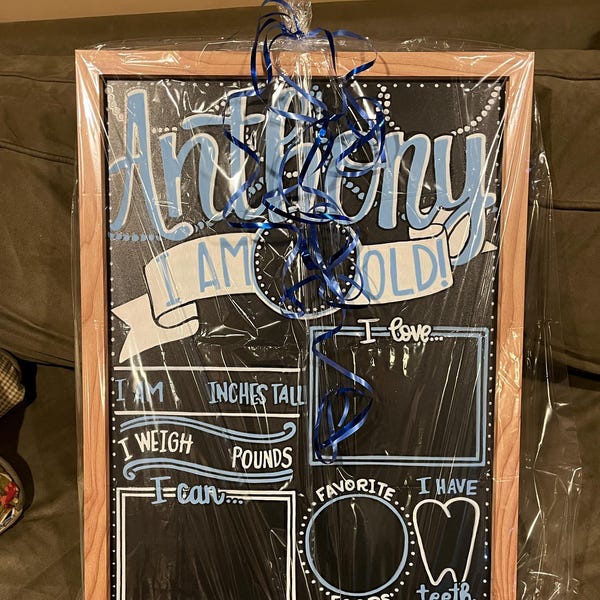 Anthony
I AM OLD!
I love...
I AM INCHES TALL
I WEIGH POUNDS
I can...
FAVORITE
FOODS
I HAVE
teeth